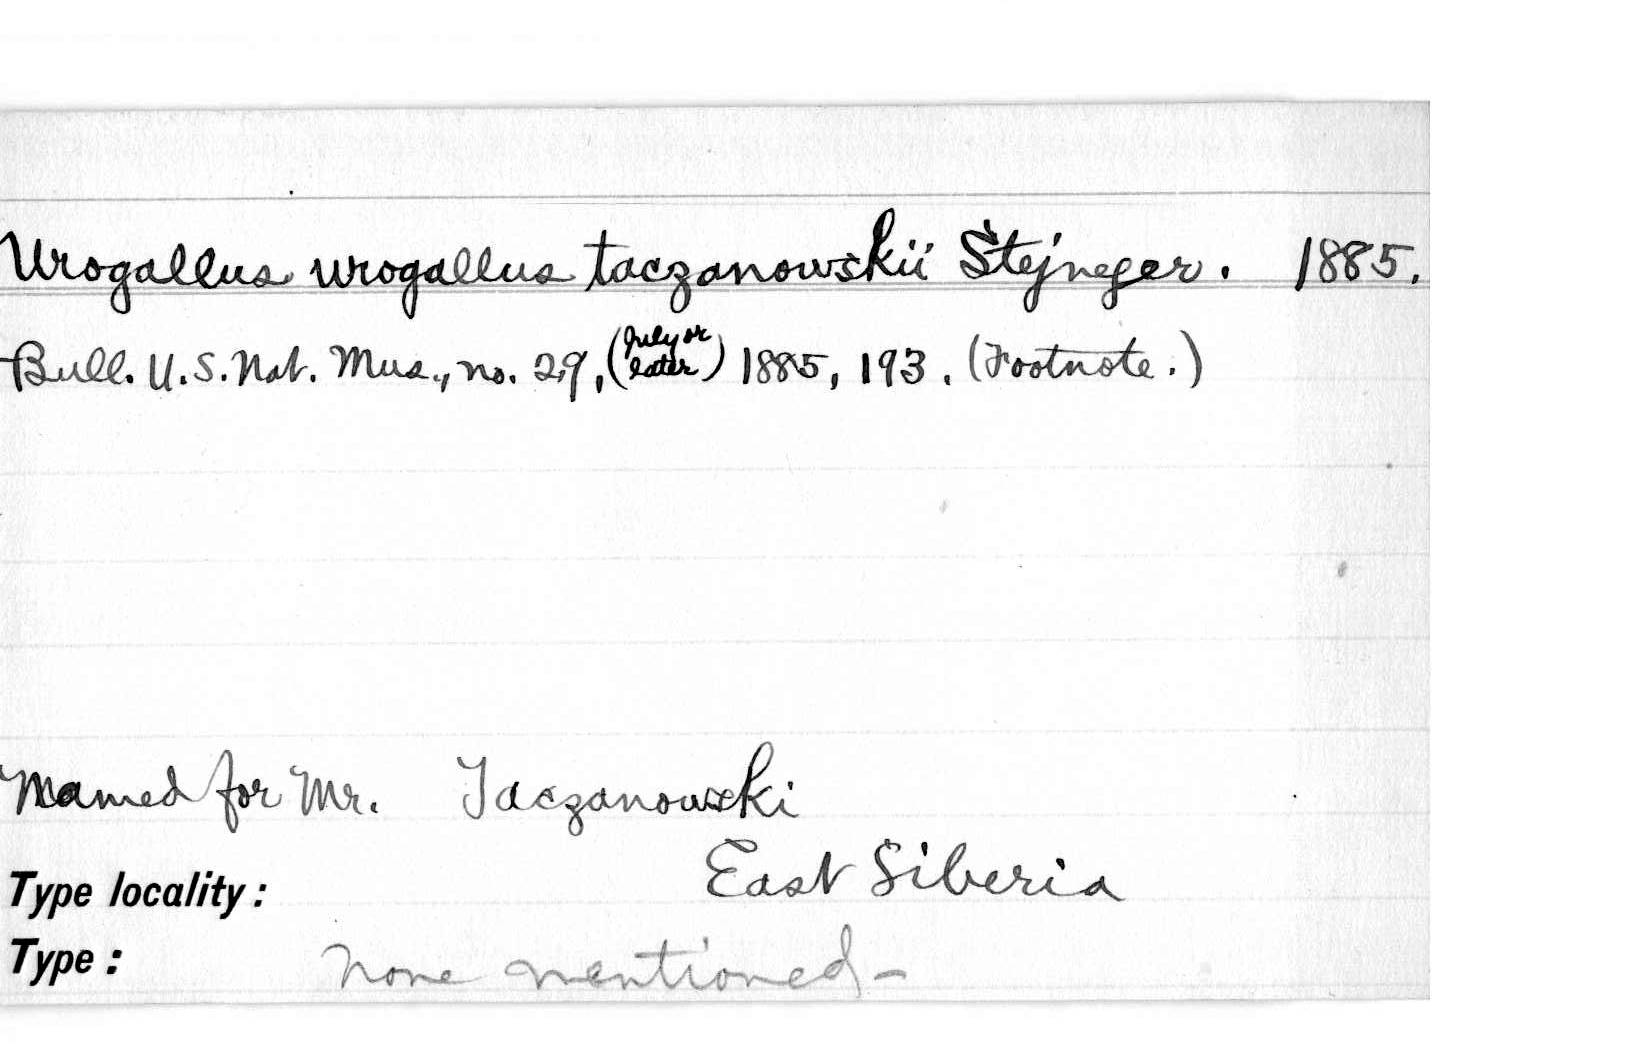 Urogallus urogallus taczanowskii Stejneger. 1885.
Bull. U.S. Nat. Mus., no. 29, (July or later) 1885, 193. (Footnote.)
Named for Mr. Taczanowski
East Siberia
Type locality:
Type: None mentioned-